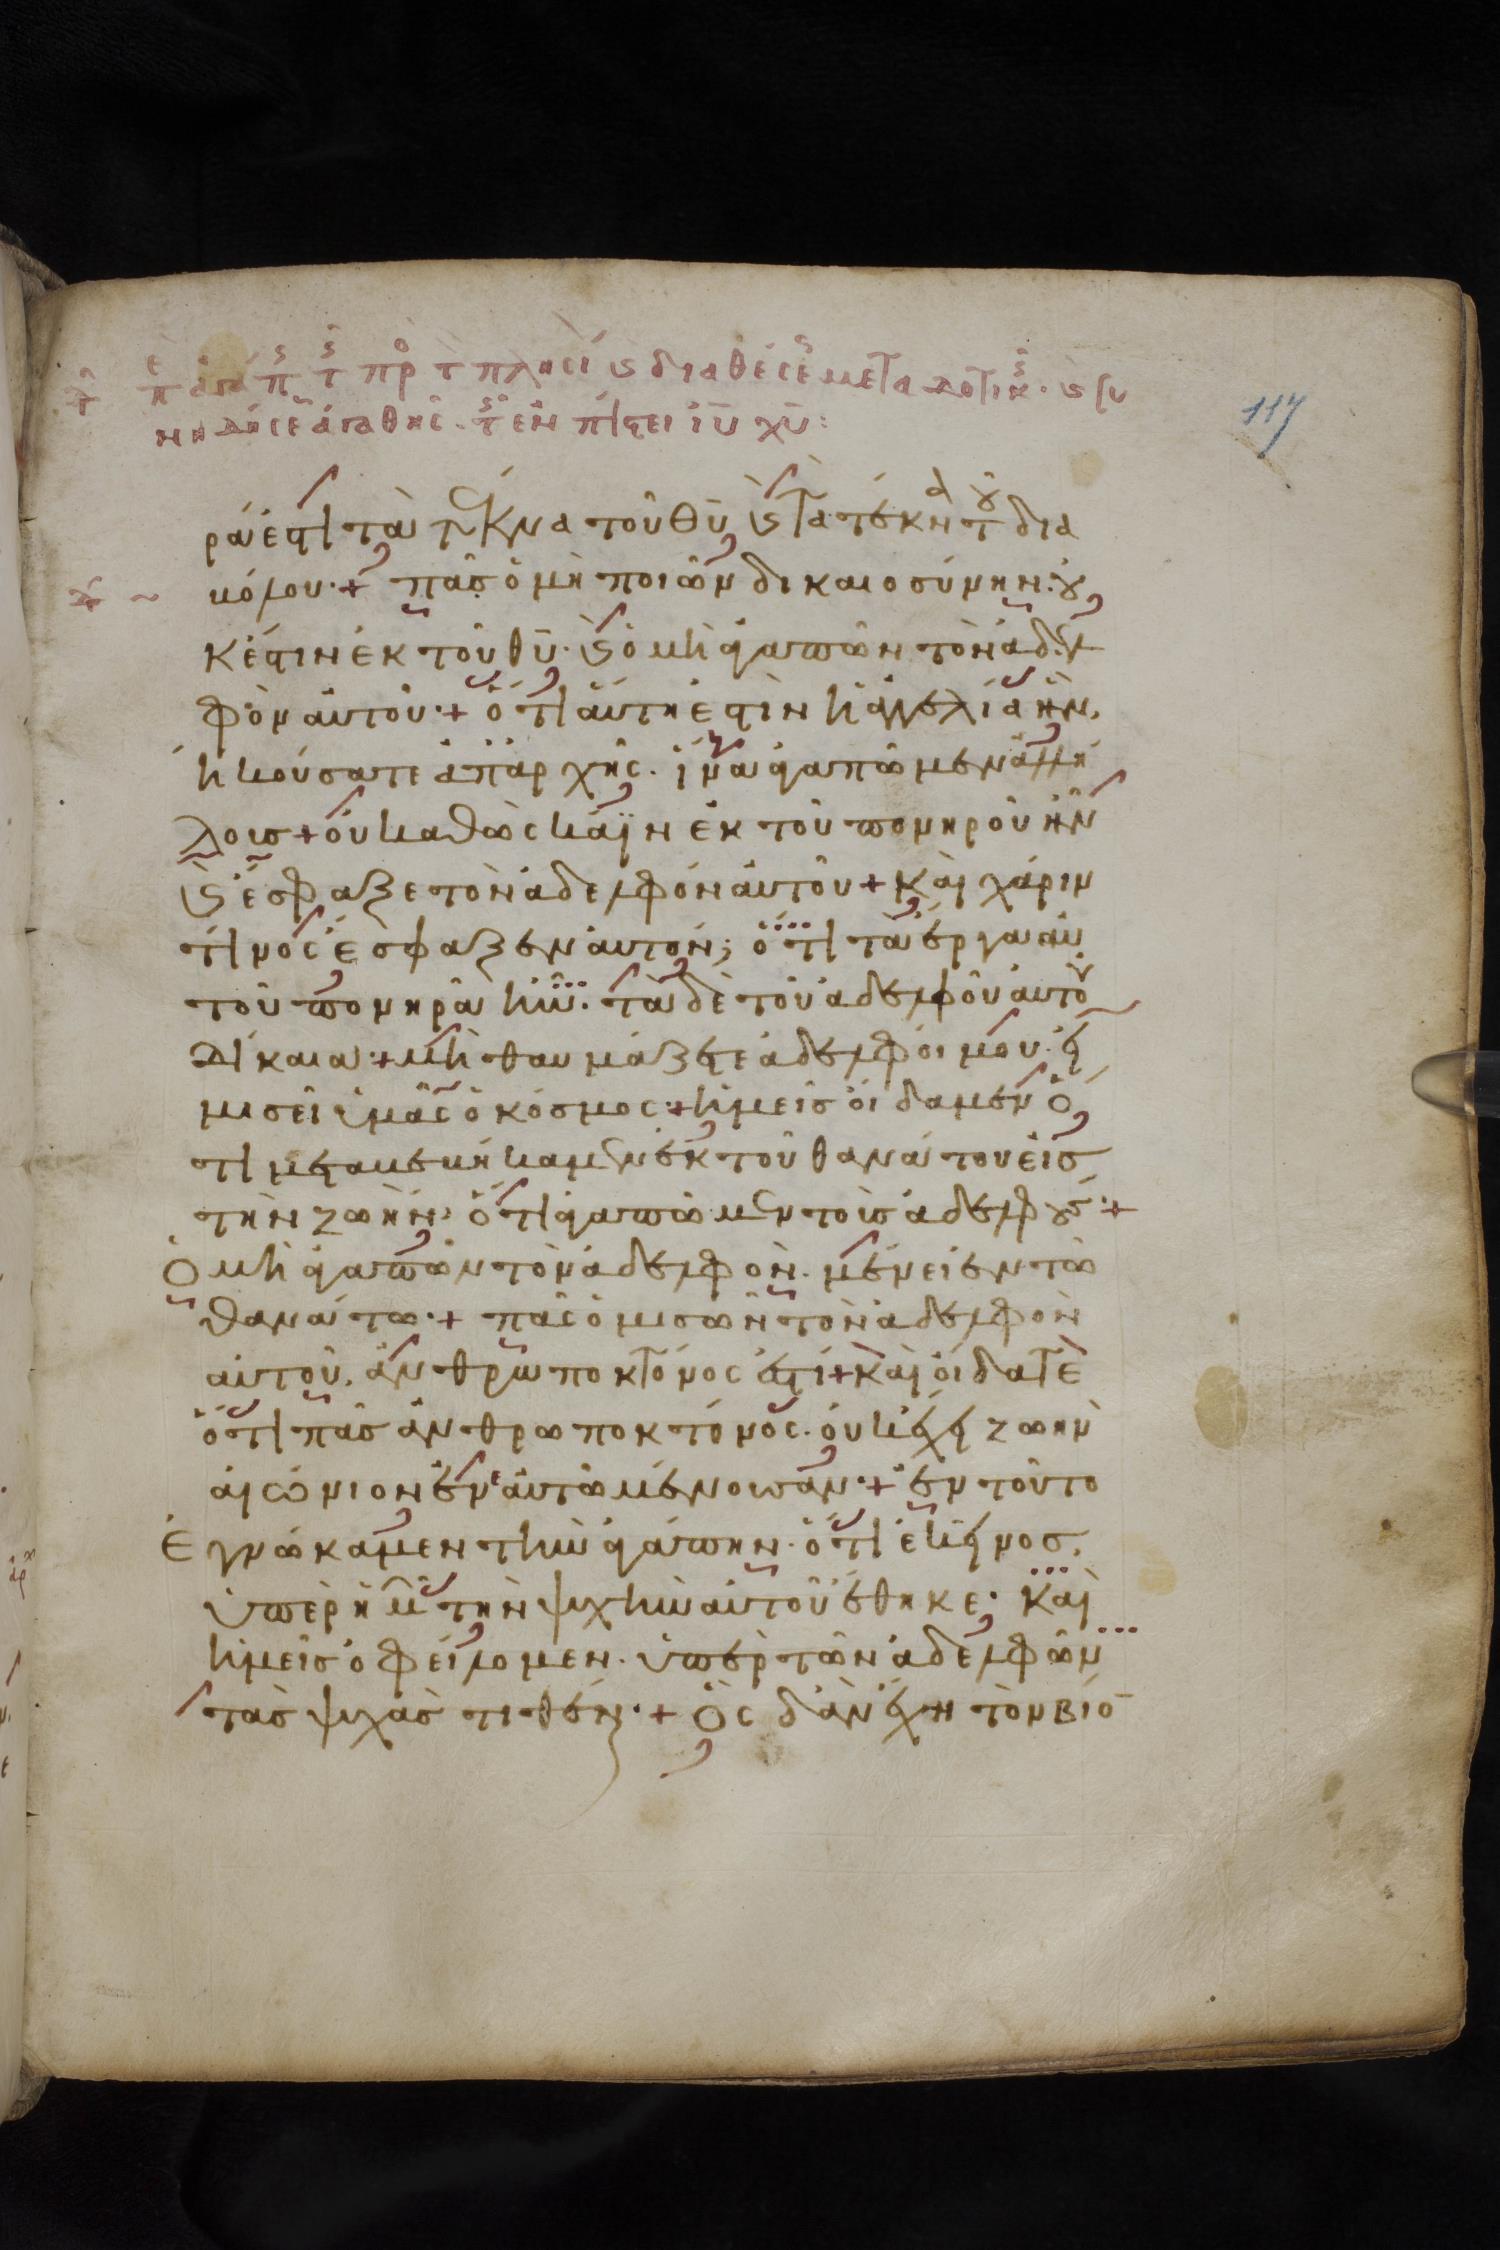 117
ρά ἐστι τὰ τέκνα τοῦ θῡ ϗ τὰ τέκνα τοῦ δια
βόλου· + πᾶς ὁ μὴ ποιῶν δικαιοσύνην· οὐ
κ ἔστιν ἐκ τοῦ θῡ· ϗ ὁ μὴ ἀγαπῶν τὸν ἀδελ
φὸν αὐτοῦ· + ὅτι αὕτη ἐστὶν ἡ ἀγγελία ἣν
ἠκούσατε ἀπ ἀρχῆς· ἵνα ἀγαπῶμεν ἀλλή
λους + οὐ καθὼς κάϊν ἐκ τοῦ πονηροῦ ἦν
ϗ ἔσφαξε τὸν ἀδελφὸν αὐτοῦ + καὶ χάριν
τίνος ἔσφαξεν αὐτόν; ὅτι τὰ ἔργα αὐ
τοῦ πονηρὰ ἦν· τὰ δὲ τοῦ ἀδελφοῦ αὐτοῦ
δίκαια· + μὴ θαυμάζετε ἀδελφοί μου· εἰ
μισεῖ ὑμᾶς ὁ κόσμος· + ἡμεῖς οἴδαμεν ὅ
τι μεταβεβήκαμεν ἐκ τοῦ θανάτου εἰς
τὴν ζωήν· ὅτι ἀγαπῶμεν τοὺς ἀδελφούς· +
Ὁ μὴ ἀγαπῶν τὸν ἀδελφὸν· μένει ἐν τῶ
θανάτω· + πᾶς ὁ μισῶν τὸν ἀδελφὸν
αὐτοῦ, ἀνθρωποκτόνος ἐστί + καὶ οἴδατε
ὅτι πᾶς ἀνθρωποκτόνος· οὐκ ἔχει ζωὴν
αἰώνιον ἐν ἑαυτῶ μένουσαν· + ἐν τούτο
Ἐγνώκαμεν τὴν ἀγάπην· ὅτι ἐκεῖνος
ὑπὲρ ἡμῶν τὴν ψυχὴν αὐτοῦ ἔθηκε· Καὶ
ἡμεῖς ὀφείλομεν· ὑπὲρ τῶν ἀδελφῶν
τὰς ψυχὰς τιθέν· + Ὃς δ ἂν ἔχη τὸν βίο